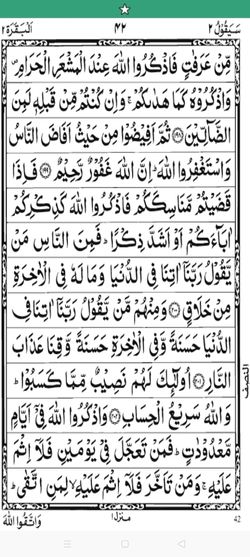 سَيَقُوْلُ ٢ ٤٢ اَلْبَقَرَة ٢
مِّنْ عَرَفٰتٍ فَاذْكُرُوا اللّٰهَ عِنْدَ الْمَشْعَرِ الْحَرَامِ ۪
وَاذْكُرُوْهُ كَمَا هَدٰىكُمْ ۚ وَاِنْ كُنْتُمْ مِّنْ قَبْلِهٖ لَمِنَ
الضَّآلِّيْنَ ۝١٩٨ ثُمَّ اَفِيْضُوْا مِنْ حَيْثُ اَفَاضَ النَّاسُ
وَاسْتَغْفِرُوا اللّٰهَ ؕ اِنَّ اللّٰهَ غَفُوْرٌ رَّحِيْمٌ ۝١٩٩ فَاِذَا
قَضَيْتُمْ مَّنَاسِكَكُمْ فَاذْكُرُوا اللّٰهَ كَذِكْرِكُمْ
اٰبَآءَكُمْ اَوْ اَشَدَّ ذِكْرًا ؕ فَمِنَ النَّاسِ مَنْ
يَّقُوْلُ رَبَّنَاۤ اٰتِنَا فِى الدُّنْيَا وَمَا لَهٗ فِى الْاٰخِرَةِ
مِنْ خَلَاقٍ ۝٢٠٠ وَمِنْهُمْ مَّنْ يَّقُوْلُ رَبَّنَاۤ اٰتِنَا فِى
الدُّنْيَا حَسَنَةً وَّفِى الْاٰخِرَةِ حَسَنَةً وَّقِنَا عَذَابَ
النَّارِ ۝٢٠١ اُولٰٓئِكَ لَهُمْ نَصِيْبٌ مِّمَّا كَسَبُوْا ؕ
وَاللّٰهُ سَرِيْعُ الْحِسَابِ ۝٢٠٢ وَاذْكُرُوا اللّٰهَ فِىْۤ اَيَّامٍ
مَّعْدُوْدٰتٍ ؕ فَمَنْ تَعَجَّلَ فِىْ يَوْمَيْنِ فَلَاۤ اِثْمَ
عَلَيْهِ ۚ وَمَنْ تَاَخَّرَ فَلَاۤ اِثْمَ عَلَيْهِ ۙ لِمَنِ اتَّقٰى ؕ
النصف
وَاتَّقُوا اللّٰهَ منزل ١ 42